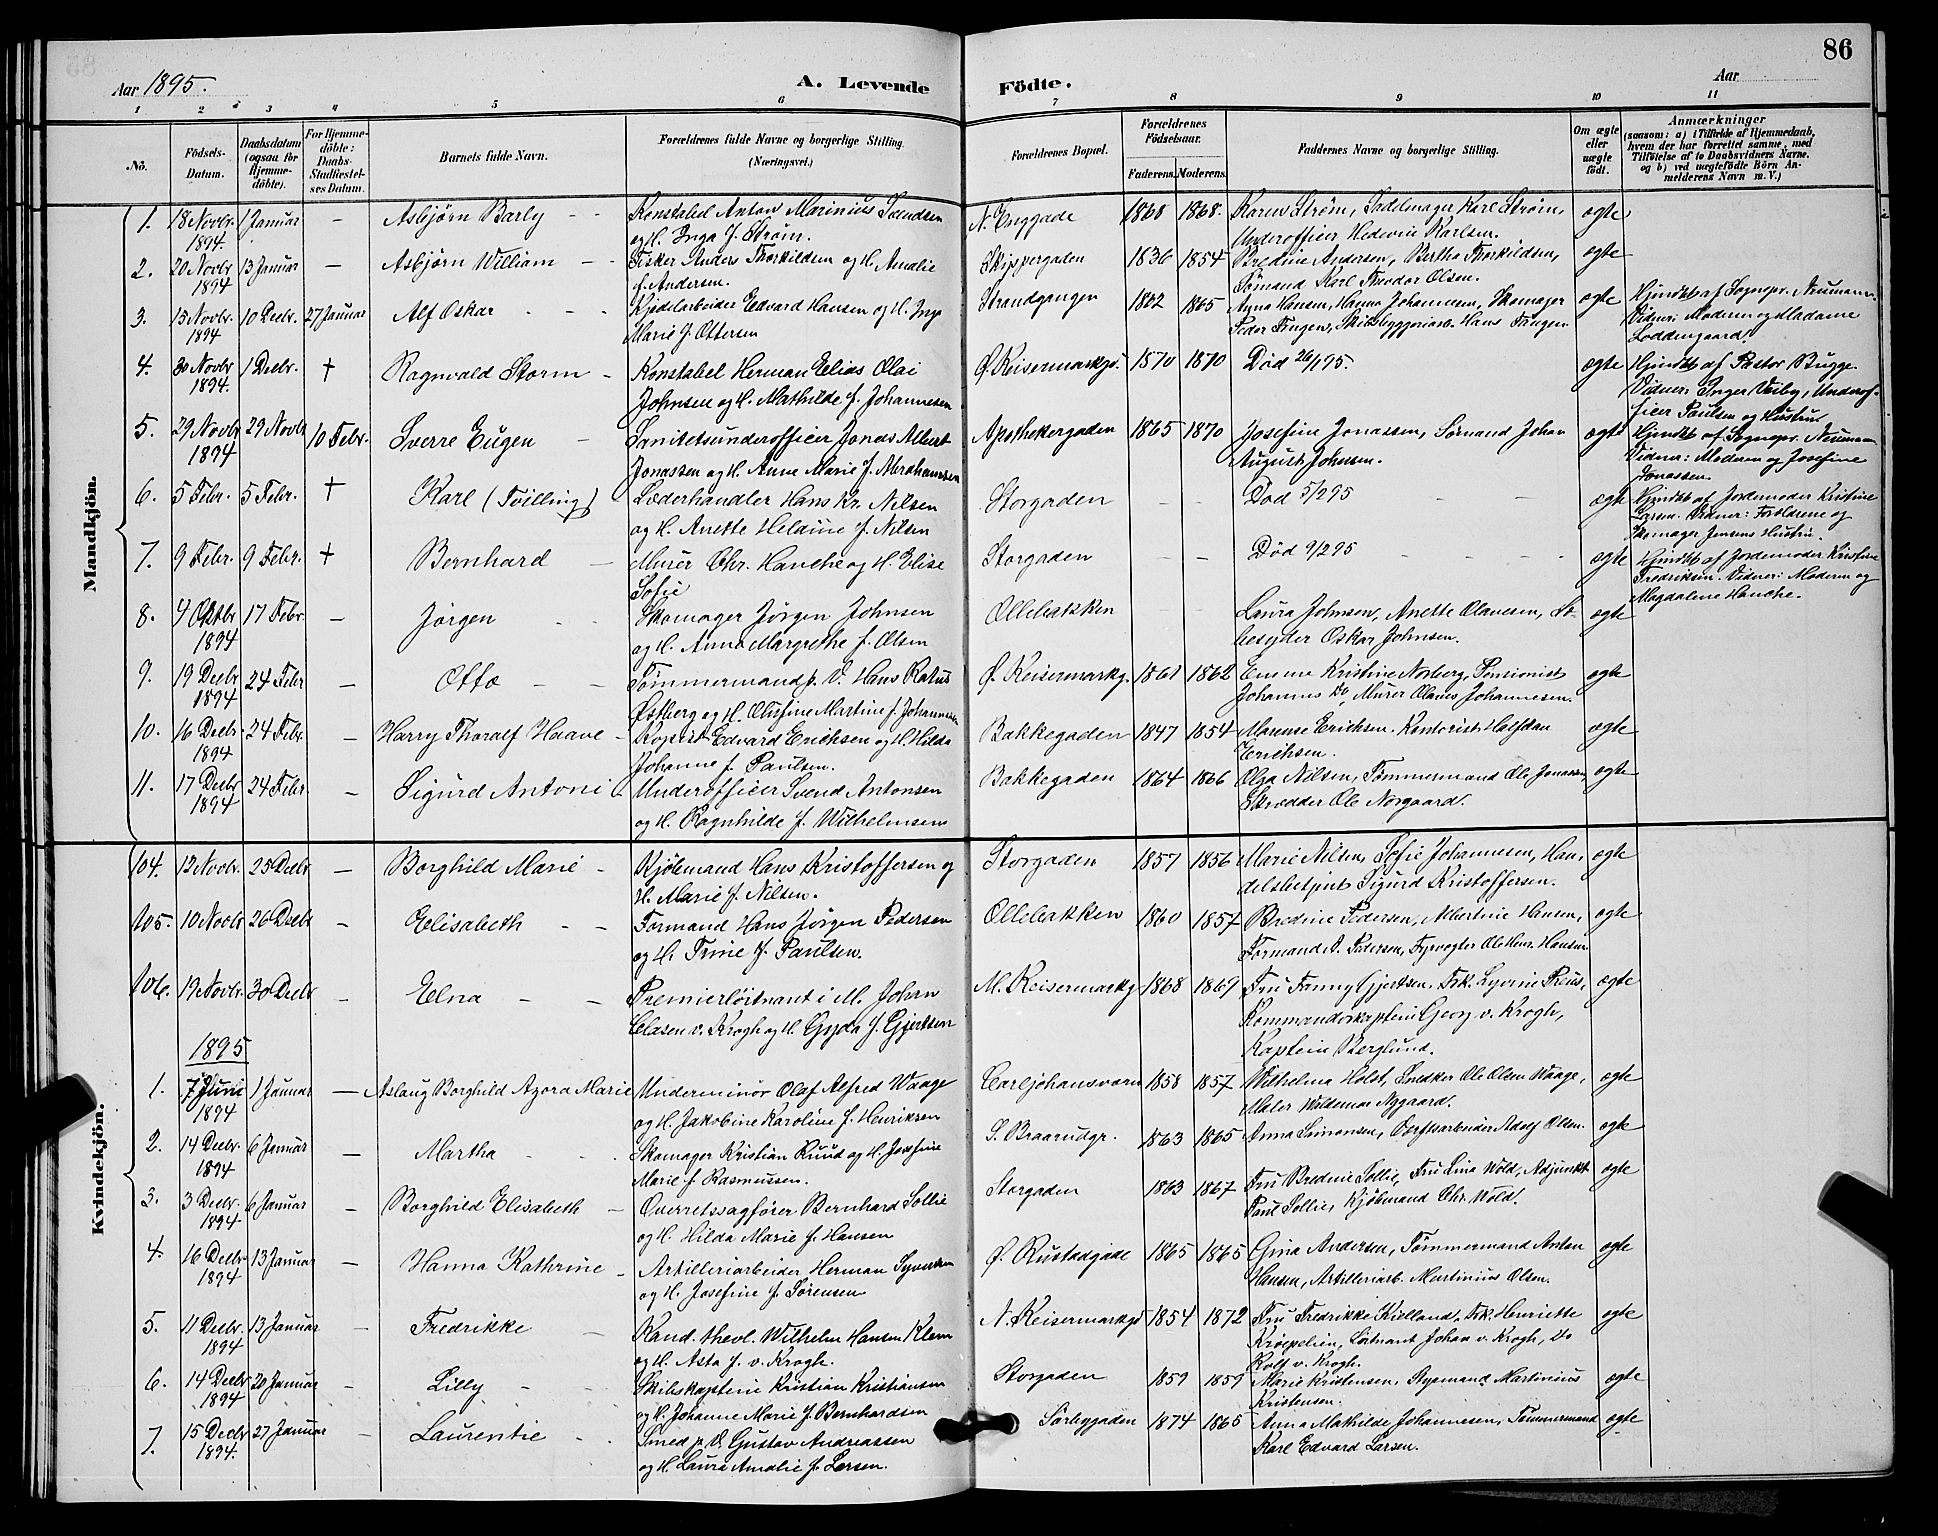 86
Aar 1895.
A. Levende Födte.
Aar
1 2 3 4 5 6 7 8 9 10 11
No.
Födsels-Datum.
Daabsdatum (ogsaa for Hjemmedöbte).
For Hjemmedöbte: Daabs-Stadfæstelses Datum.
Barnets fulde Navn.
Forældrenes fulde Navne og borgerlige Stilling. (Næringsvei.)
Forældrenes Bopæl.
Forældrenes Födselsaar.
Faderens. Moderens.
Faddernes Navne og borgerlige Stilling.
Om ægte eller uægte födt.
Anmærkninger
(saasom: a) i Tilfælde af Hjemmedaab, hvem der har forrettet samme, med Tilföielse af to Daabsvidners Navne, og b) ved uægtefödte Börn Anmelderens Navn m. V.)
Mandkjön.
1. 18 Novbr. 1894. 1 Januar – Asbjørn Barly – – Konstabel Anton Marinius Svendsen og H. Inga f. Strøm. N. Enggade 1868 1868. Karen Strøm, Sadelmager Karl Strøm, Underofficer Hedevin Karlsen. ægte
2. 20 Novbr 1894 13 Januar – Asbjørn William – – Fisker Anders Thorkildsen og H. Amalie f. Andersen. Skippergaden 1836 1854 Bredine Andersen, Berthe Thorkildsen, Sømand Karl Theodor Olsen. ægte
3. 15 Novbr. 1894 10 Decbr. 27 Januar Alf Oskar – – Kjedelarbeider Edvard Hansen og H. Inga Marie f. Ottersen Strandgangen 1862 1865 Anna Hansen, Hanna Johannesen, Skomager Peder Fangen, Skibsbyggeriarb. Hans Fangen ægte Hjmdbt af Sognepr. Neumann. Vidner: Moderen og Madame Loddengaard.
4. 30 Novbr 1894. 1 Decbr. † Ragnvald Storm – Konstabel Herman Elias Olai Johnsen og H. Mathilde f. Johannesen Ø. Keisermarkgd. 1870 1870 Død 26/1 95. ægte Hjmdbt af Pastor Bugge. Vidner: Inger Veiby, Underofficer Paulsen og Hustru.
5. 29 Novbr 1894 29 Novbr 10 Febr. Sverre Eugen – Sanitetsunderofficer Jonas Albert Jonassen og H. Anne Marie f. Abrahamsen Apothekergaden 1865 1870 Josefine Jonassen, Sømand Johan August Johnsen. ægte Hjmdbt af Sognepr. Neumann Vidner: Moderen og Josefine Jonassen.
6. 5 Febr. 5 Febr. † Karl (Tvilling) Læderhandler Hans Kr. Nilsen og H. Anette Heldine f. Nilsen Storgaden – – Død 5/2 95 – – ægte Hjmdbt af Jordemoder Kristine Larsen. Vidner: Forældrene og Skomager Jensens Hustru.
7. 9 Febr. 9 Febr. † Bernhard – Murer Chr. Hanche og H. Elise Sofie Storgaden – – Død 9/2 95 – – – ægte Hjmdbt af Jordemoder Kristine Fredriksen. Vidner: Moderen og Magdalene Hanche.
8. 4 Oktbr 1894 17 Febr. – Jørgen – – Skomager Jørgen Johnsen og H. Anna Margrethe f. Olsen Ollebakken Laura Johnsen, Anette Olavesen, Løbesyder Oskar Johnsen. ægte
9. 19 Decbr 1894 24 Febr – Otto – – Tømmermand p. V. Hans Østberg og H. Olufine Martine f. Johannesen Ø. Keisermarkg. 1861 1862 Emme Kristine Norberg, Pensionist Johannes Do, Murer Olaves Johannesen. ægte
10. 16 Decbr. 1894 24 Febr. – Harry Thoralf Haave – Kopist Edvard Erichsen og H. Hilda Johanne f. Paulsen. Bakkegaden 1847 1854 Marense Erichsen. Kontorist Halfdan Erichsen. ægte
11. 17 Decbr 1894 24 Febr. – Sigurd Antoni – Underofficer Svend Antonsen og H. Ragnhilde f. Wilhelmsen Bakkegaden 1864 1866 Olga Nilsen, Tømmermand Ole Jonassen, Skrædder Ole Norgaard. ægte
Kvindekjön.
104. 12 Novbr. 25 Decbr – Borghild Marie – Kjøbmand Hans Kristoffersen og H. Marie f. Nilsen. Storgaden 1857 1856 Marie Nilsen, Sofie Johannesen, Handelsbetjent Sigurd Kristoffersen. ægte
105. 10 Novbr 26 Decbr – Elisabeth – – Formand Hans Jørgen Pedersen og H. Trine f. Paulsen. Ollebakken 1860 1857 Bredine Pedersen, Albertine Hansen, Formand A. Pedersen, Fyrvogter Ole Hansen. ægte
106. 19 Novbr. 30 Decbr – Elna – – Premierløitnant i M. Johan Clasen v. Krogh og H. Gyda f. Gjertsen M. Keisermarkg 1868 1869 Fru Fanny Gjertsen, Frk. Preus, Kommandørkaptein Georg v. Krogh, Kaptein Berglund. ægte
1895
1. 7 Juni 1894 1 Januar – Aslaug Borghild Azora Marie Underminør Olaf Alfred Waage og H. Jakobine Karoline f. Henriksen Carljohansværn 1858 1857 Wilhelma Holst, Snedker Ole Olsen Waage, Maler Waldemar Nygaard. ægte
2. 14 Decbr. 1894 6 Januar – Martha – – Skomager Kristian Ruud og H. Josefine Marie f. Rasmussen. S. Braarudgr. 1863 1865 Anna Simonsen, Værftsarbeider Adolf Olsen. ægte
3. 3 Decbr. 1894 6 Januar – Borghild Elisabeth – Overretssagfører Bernhard Sollie og H. Hilda Marie f. Hansen Storgaden 1863 1867 Fru Bredine Sollie, Fru Lina Wold, Adjunkt Paul Sollie, Kjøbmand Chr. Wold. ægte
4. 16 Decbr. 1894 13 Januar – Hanna Kathrine – Artilleriarbeider Herman Syversen og H. Josefine f. Sørensen Ø. Rustadgade 1865 1865 Gina Andersen, Tømmermand Anton Hansen, Artilleriarb. Martinius Olsen. ægte
5. 11 Decbr. 1894 13 Januar – Fredrikke – Kand. theol. Wilhelm Hansen Klem og H. Asta f. v. Krogh. N. Keisermarkgd 1854 1872 Fru Fredrikke Kielland, Frk. Henriette Krøepelien, Løitnant Johan v. Krogh, do Rolf v. Krogh. ægte
6. 14 Decbr 1894 20 Januar – Lilly – – Skibskaptein Kristian Kristiansen og H. Johanne Marie f. Bernhardsen Storgaden 1859 1859 Marie Kristensen, Styrmand Martinius Kristensen. ægte
7. 15 Decbr 1894. 27 Januar – Laurentie – – Smed p. V. Gustav Andreassen og H. Laura Amalie f. Larsen. Sørbygaden 1874 1865 Anna Mathilde Johannesen, Tømmermand Karl Edvard Larsen. ægte